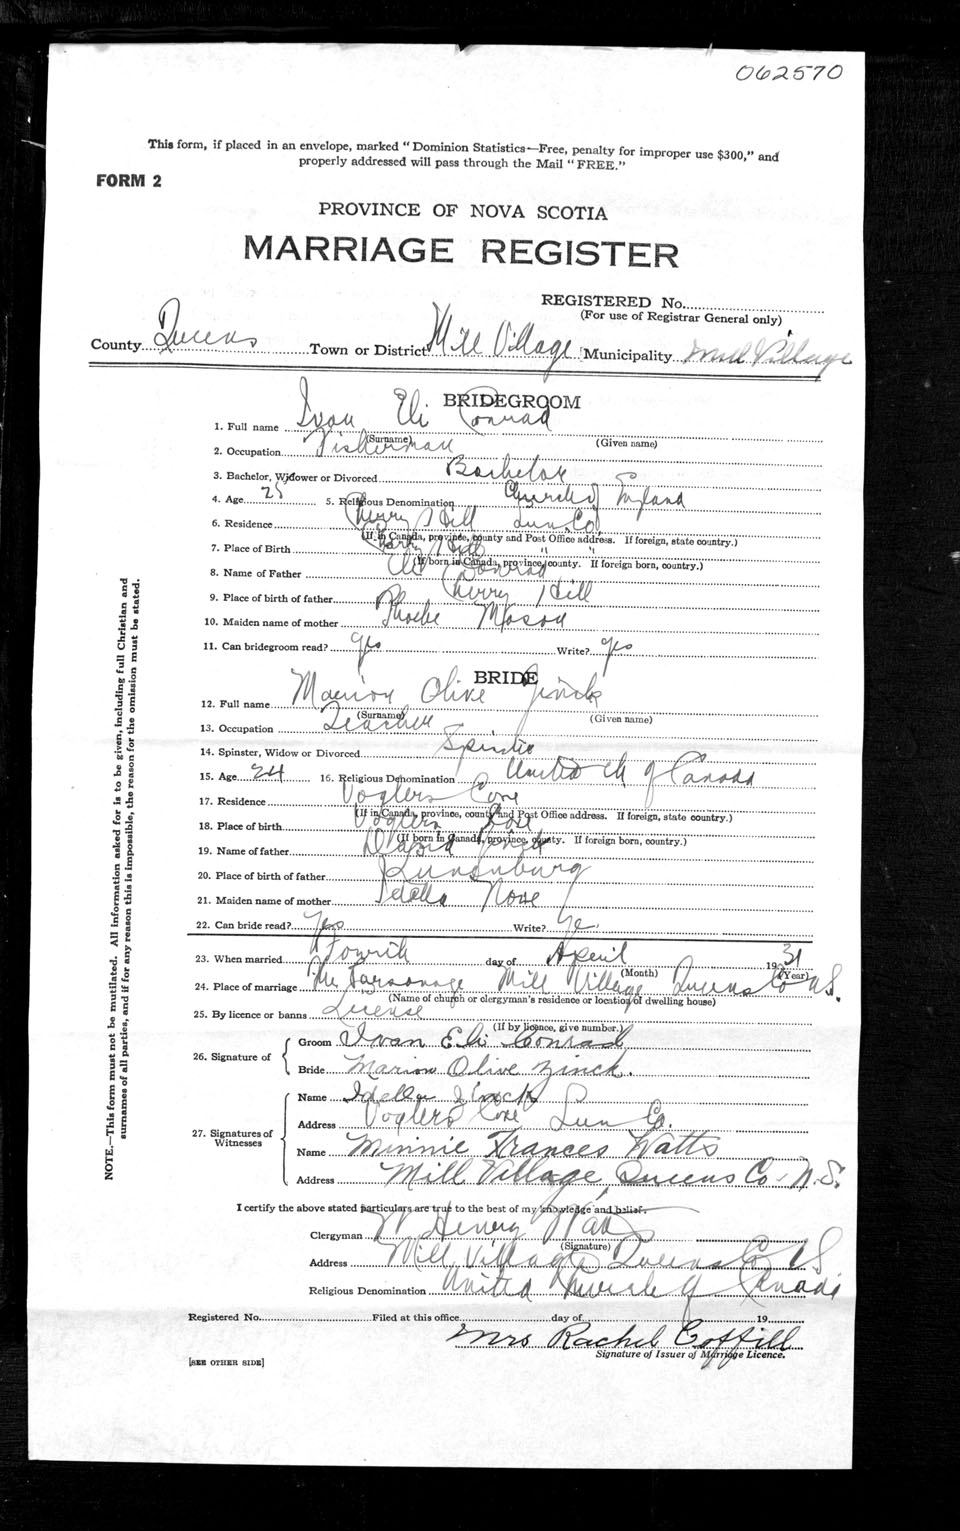 062570
This form, if placed in an envelope, marked "Dominion Statistics—Free, penalty for improper use $300," and
properly addressed will pass through the Mail "FREE."
FORM 2
PROVINCE OF NOVA SCOTIA
MARRIAGE REGISTER
REGISTERED No.
(For use of Registrar General only)
County Queens Town or District Mill Village Municipality Mill Village
BRIDEGROOM
1. Full name Ivan Eli Conrad
(Surname) (Given name)
2. Occupation Fisherman
3. Bachelor, Widower or Divorced Bachelor
4. Age 25 5. Religious Denomination Church of England
6. Residence Cherry Hill Lun. Co.
(If in Canada, province, county and Post Office address. If foreign, state country.)
7. Place of Birth Cherry Hill " "
(If born in Canada, province, county. If foreign born, country.)
8. Name of Father Eli Conrad
9. Place of birth of father Cherry Hill
10. Maiden name of mother Phoebe Mason
11. Can bridegroom read? yes Write? yes
BRIDE
12. Full name Marion Olive Zinck
(Surname) (Given name)
13. Occupation Teacher
14. Spinster, Widow or Divorced Spinster
15. Age 24 16. Religious Denomination United Ch of Canada
17. Residence Voglers Cove
(If in Canada, province, county and Post Office address. If foreign, state country.)
18. Place of birth Voglers Cove
(If born in Canada, province, county. If foreign born, country.)
19. Name of father David Zinck
20. Place of birth of father Lunenburg
21. Maiden name of mother Idella
22. Can bride read? Yes Write? Ye
23. When married Fourth day of April 1931
(Month) (Year)
24. Place of marriage The Parsonage Mill Village Queens Co N.S.
(Name of church or clergyman's residence or location of dwelling house)
25. By licence or banns License
(If by licence, give number.)
26. Signature of
Groom Ivan Eli Conrad
Bride Marion Olive Zinck.
27. Signatures of Witnesses
Name Idella Zinck
Address Voglers Cove Lun Co.
Name Minnie Frances Watts
Address Mill Village, Queens Co. N.S.
I certify the above stated particulars are true to the best of my knowledge and belief.
Clergyman W Henry Watts
(Signature)
Address Mill Village Queens Co N.S.
Religious Denomination United Church of Canada
Registered No. Filed at this office day of 19
Mrs Rachel Coffill
Signature of Issuer of Marriage Licence.
[SEE OTHER SIDE]
NOTE.—This form must not be mutilated. All information asked for is to be given, including full Christian and
surnames of all parties, and if for any reason this is impossible, the reason for the omission must be stated.